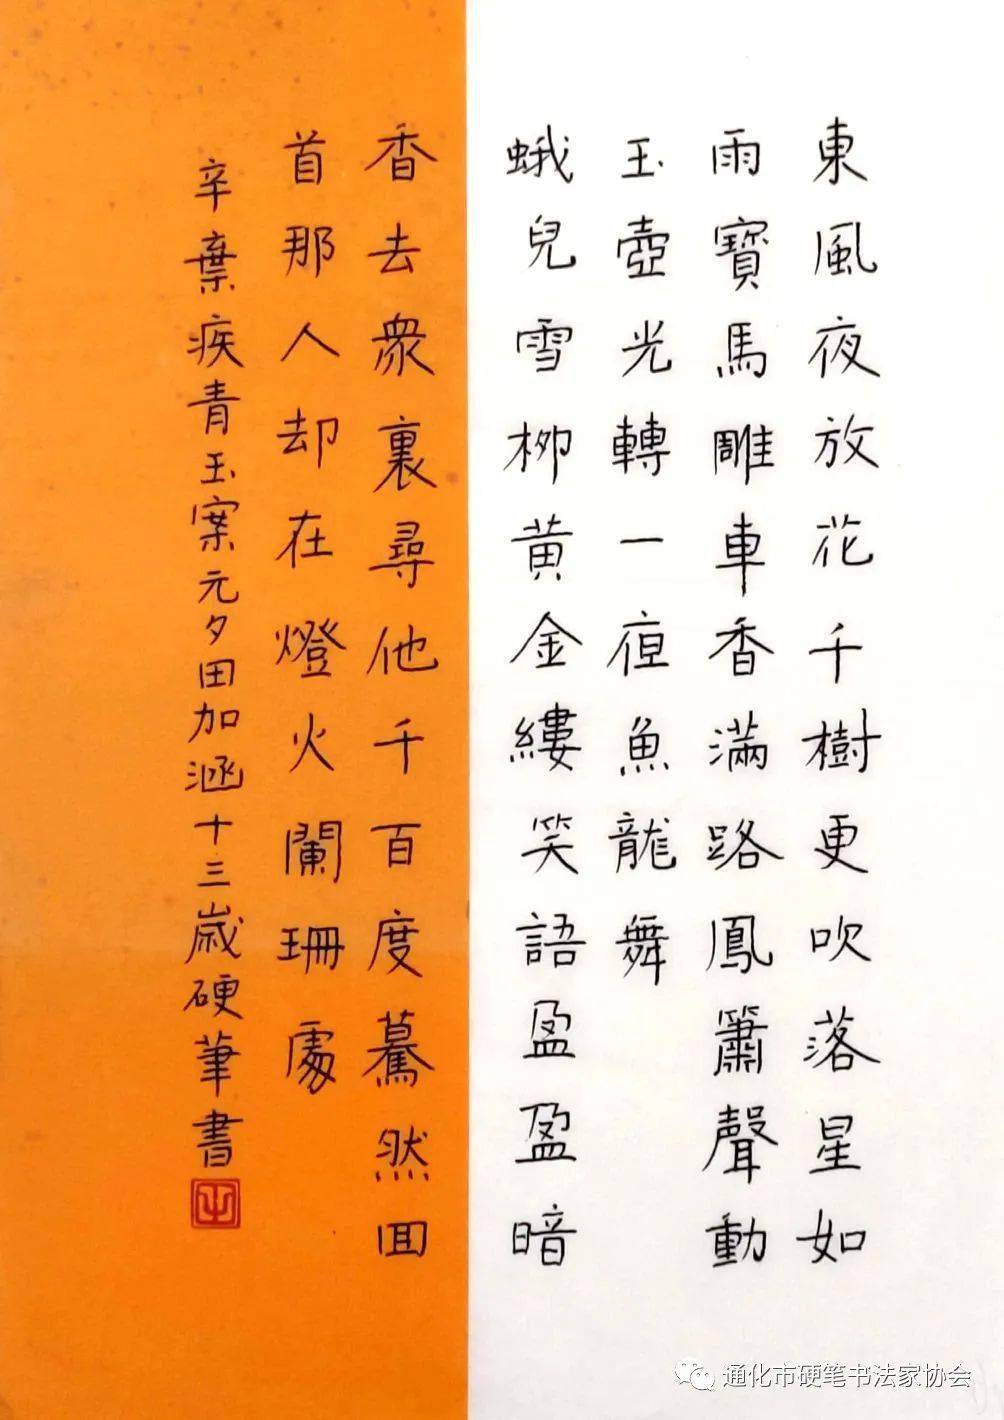 東風夜放花千樹更吹落星如
雨寶馬雕車香滿路鳳簫聲動
玉壺光轉一夜魚龍舞
蛾兒雪柳黃金縷笑語盈盈暗
香去衆裏尋他千百度驀然回
首那人却在燈火闌珊處
辛棄疾青玉案元夕田加涵十三歲硬筆書
通化市硬笔书法家协会